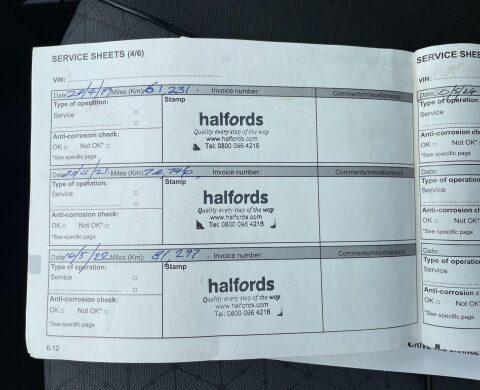 SERVICE SHEETS (4/6)
VIN:
Date: Miles (Km): 61,231 Invoice number: Comments/miscellaneous
Type of operation: Stamp
Service
halfords
Quality every step of the way
www.halfords.com
Tel: 0800 096 4216
Anti-corrosion check:
OK □ Not OK* □
*See specific page
Date: Miles (Km): 74,746 Invoice number: Comments/miscellaneous
Type of operation: Stamp
Service
halfords
Quality every step of the way
www.halfords.com
Tel: 0800 096 4216
Anti-corrosion check:
OK □ Not OK* □
*See specific page
Date: 16/5/22 Miles (Km): 81,297 Invoice number: Comments/miscellaneous
Type of operation: Stamp
Service
halfords
Quality every step of the way
www.halfords.com
Tel: 0800 096 4216
Anti-corrosion check:
OK □ Not OK* □
*See specific page
6-12
SERVICE SHEE
VIN:
Date: /5/24
Type of operation
Service
Anti-corrosion
OK □ Not
*See specific page
Date:
Type of operation
Service
Anti-corrosion
OK □ Not
*See specific page
Date:
Type of operation
Service
Anti-corrosion
OK □ Not
*See specific page